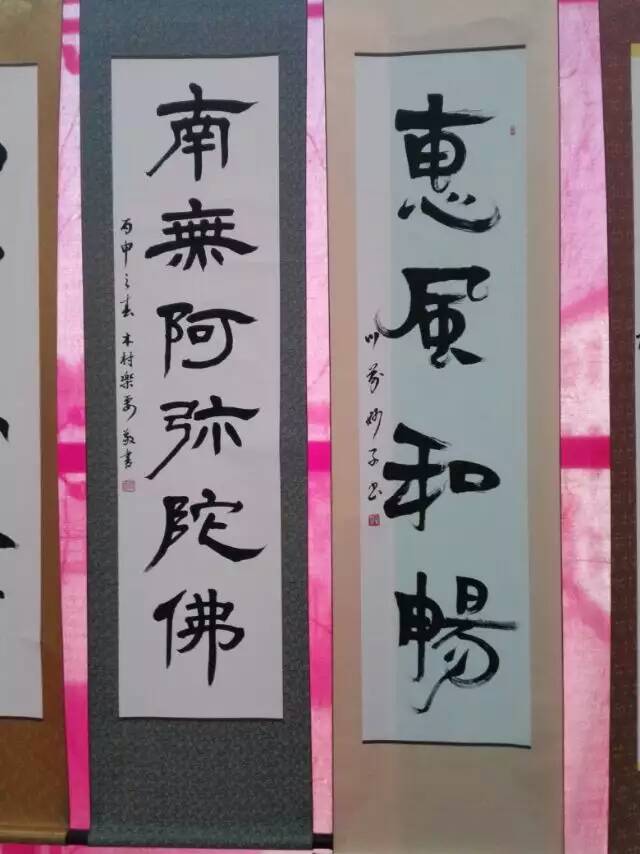 惠風和暢
川萘妙子書
南無阿弥陀佛
丙申之春 木村樂邦敬書